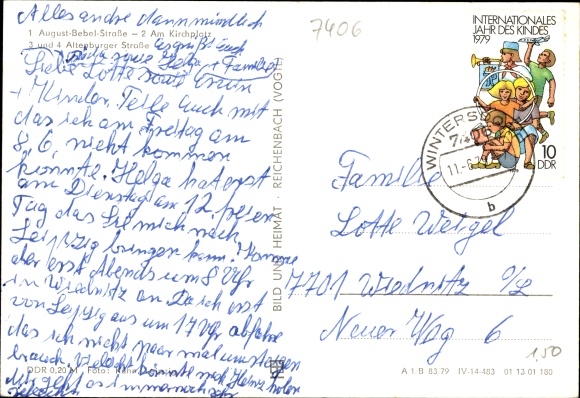 Alles andre dann mündlich
1 August-Bebel-Straße – 2 Am Kirchplatz
3 und 4 Altenburger Straße
Es grüßt Euch
sowie Helga + Familie
Liebe Lotte
+ Kinder. Teile Euch mit
das ich am Freitag am
8.6. nicht kommen
konnte. Helga hat erst
am Dienstag am 12. freien
Tag das Sie mich nach
Leipzig bringen kann. Komme
der erst Abends um 8 Uhr
in Wiednitz an. Da ich erst
von Leipzig aus um 17 Uhr abfahre
das ich nicht paar mal umsteigen
brauch. Vielleicht könnte mich Heinz holen
Mir geht es immer noch sehr
schlecht
DDR 0,20 M Foto:
BILD UND HEIMAT · REICHENBACH (VOGTL)
7406
INTERNATIONALES
JAHR DES KINDES
1979
10
DDR
WINTERSDORF
7406
11.-6.
b
Familie
Lotte Weigel
7701 Wiednitz O/L
Neuer Weg 6
1,50
A 1 B 83.79 IV-14-483 01 13 01 180